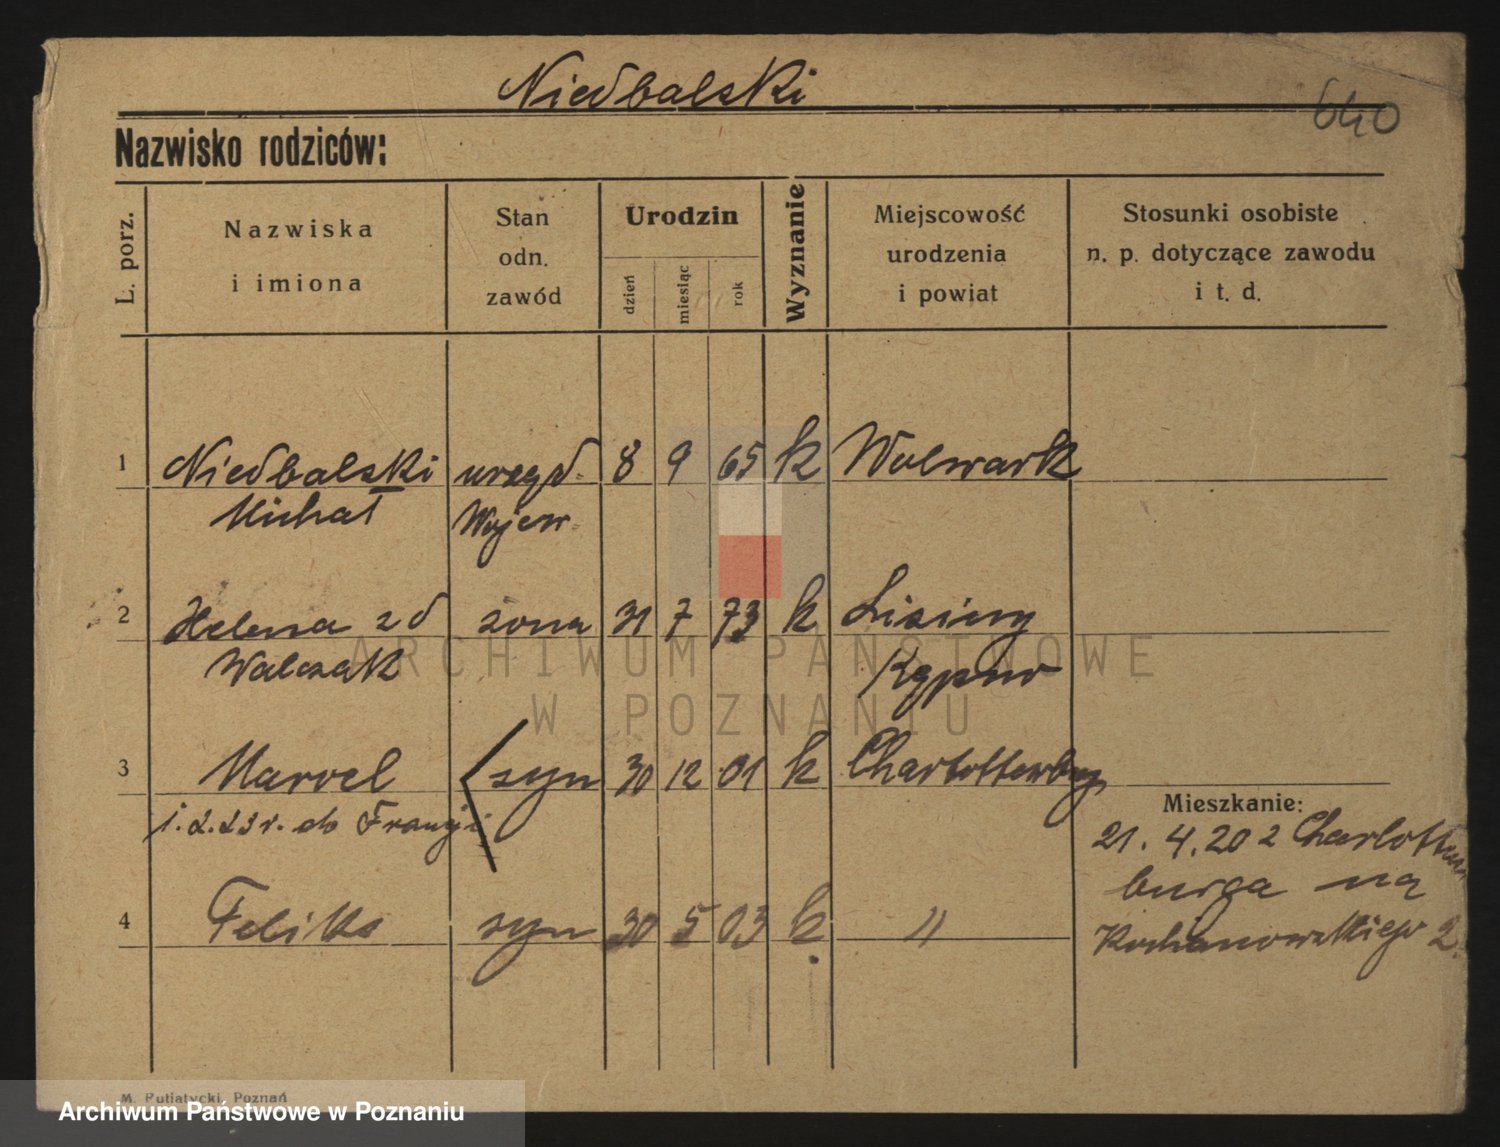 Niedbalski
640
Nazwisko rodziców:
L. porz.
Nazwiska
i imiona
Stan
odn.
zawód
Urodzin
dzień
miesiąc
rok
Wyznanie
Miejscowość
urodzenia
i powiat
Stosunki osobiste
n. p. dotyczące zawodu
i t. d.
1 Niedbalski urzęd. 8 9 65 k Wolwark
Michał Wojew.
2 Helena zd żona 31 7 73 k
Walczak Kępno
3 Marcel syn 30 12 01 k Charlottenburg
do Francji
Mieszkanie:
21.4.20 z Charlotten
burga na
Kochanowskiego 2.
4 Feliks syn 30 5 03 k "
ARCHIWUM PAŃSTWOWE
W POZNANIU
M. Putiatycki, Poznań
Archiwum Państwowe w Poznaniu